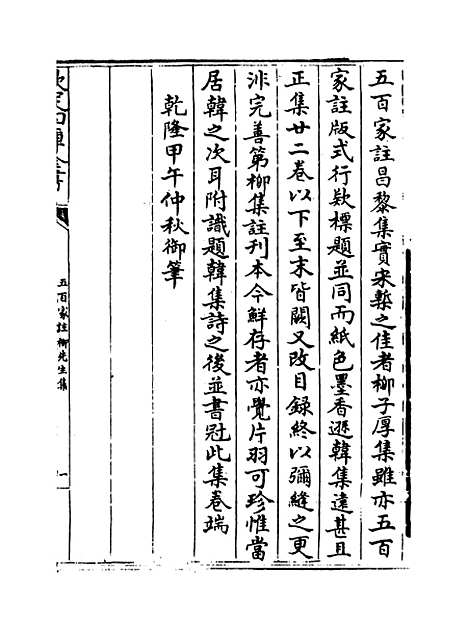 五百家註昌黎集實宋槧之佳者柳子厚集雖亦五百
家註版式行欵標題並同而紙色墨香遜韓集遠甚且
正集廿二卷以下至末皆闕又改目録終以彌縫之更
非完善第柳集註刊本今鮮存者亦覺片羽可珍惟當
居韓之次耳附識題韓集詩之後並書冠此集卷端
乾隆甲午仲秋御筆
欽定四庫全書
五百家註柳先生集
一